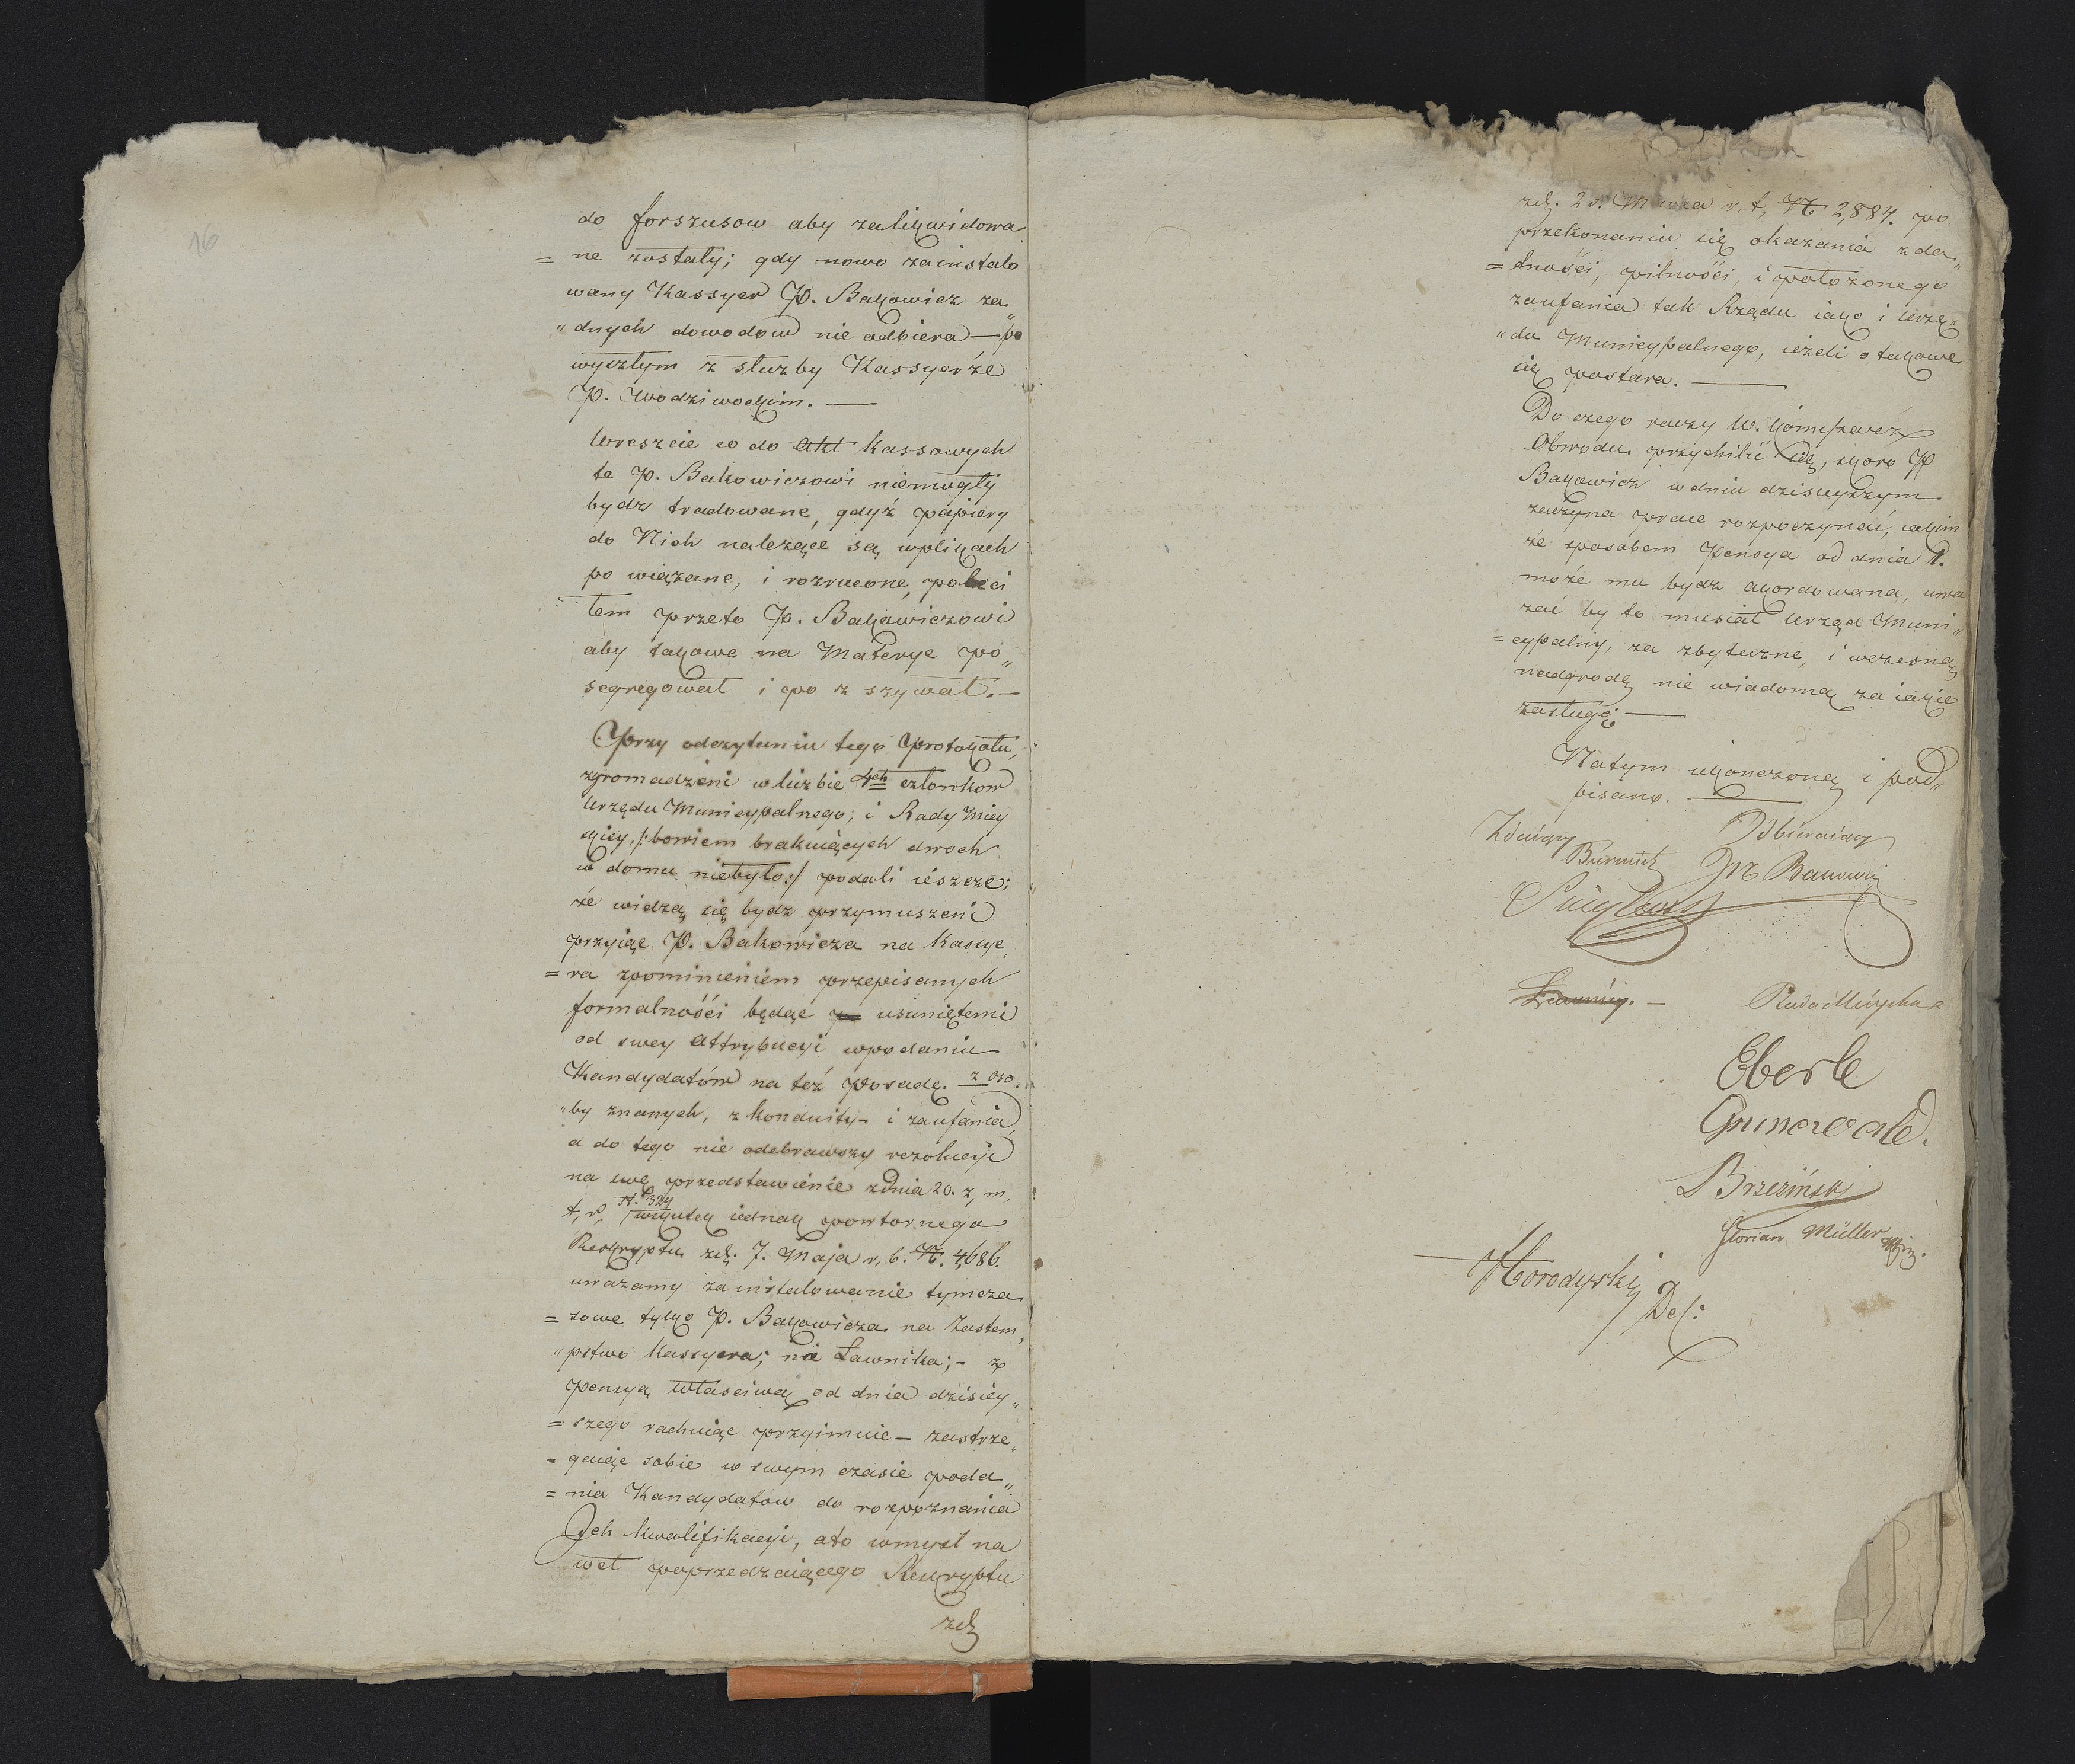 16
do forszusow aby zalikwidowa
= ne zostały; gdy nowo zainstalo
wany Kassyer P. Bakowicz za„
„dnych dowodow nie odbiera — po
wyszłym z służby Kassyerze
P. Wodziwodzkim. —
Wreszcie co do Akt Kassowych
te P. Bakowiczowi niemogły
bydz tradowane, gdyż papiery
do Nich należące są w plikach
po wiązane, i rozrucone, poleci
łem przeto P. Bakowiczowi
aby takowe na Materye po„
segregował i po z szywał. —
Przy odczytaniu tego Protokołu,
zgromadzeni w liczbie 4ch członkow
Urzędu Municypalnego; i Rady Miey
skiey, /: bowiem brakuiących dwoch
w domu niebyło :/ podali ieszcze;
że widzą się bydz przymuszeni
przyiąc P. Bakowicza na Kassye„
= ra z pominieniem przepisanych
formalności będąc usuniętemi
od swey Attrybucyi w podaniu
Kandydatów na też Posadę. z oso„
„by znanych, z konduity - i zaufania,
a do tego nie odebrawszy rezolucyi
na swę przedstawienie z dnia 20. z, m,
t, r, N.° 324 / w skutek iednak powtornego
Reskryptu zd. 7. Maja r, b. N. 4,686.
uważamy zainstalowanie tymcza„
= sowe tylko P. Bakowicza na Zastem„
„pstwo Kassyera; nie Ławnika; - z
Pensyą właściwą od dnia dzisiey„
= szego rachuiąc przyimuie — zastrze„
= gaiąc sobie w swym czasie poda„
= nia Kandydatow do rozpoznania
Ich kwalifikacyi, a to w myśl na
wet poprzedzaiącego Reskryptu
zd
zd. 20. Marca r, t, N 2,884. po
przekonaniu się okazania zda„
= tności, pilności, i położonego
zaufania tak Rządu iako i Urzę„
„du Municypalnego, ieżeli o takowe
się postara. —
Do czego raczy W. Kommissarz
Obwodu przychilić się, skoro P
Bakowicz w dniu dzisieyszym
zaczyna prace rozpoczynać, iakim
że sposobem Pensya od dnia 1.
może mu bydz akordowana, uwa
żać by to musiał Urząd Muni„
= cypalny, za zbyteczne, i wczesną
nadgrodę nie wiadomą za iakie
zasługi: —
Na tym ukończoną i pod„
pisano. —
Zdaiący Odbieraiący
Burmistrz Bakowicz
Ławnicy. — Rada Mieyska
Eberle
Grunewald.
Brzeziński
Florian Müller
Horodyski
Del: